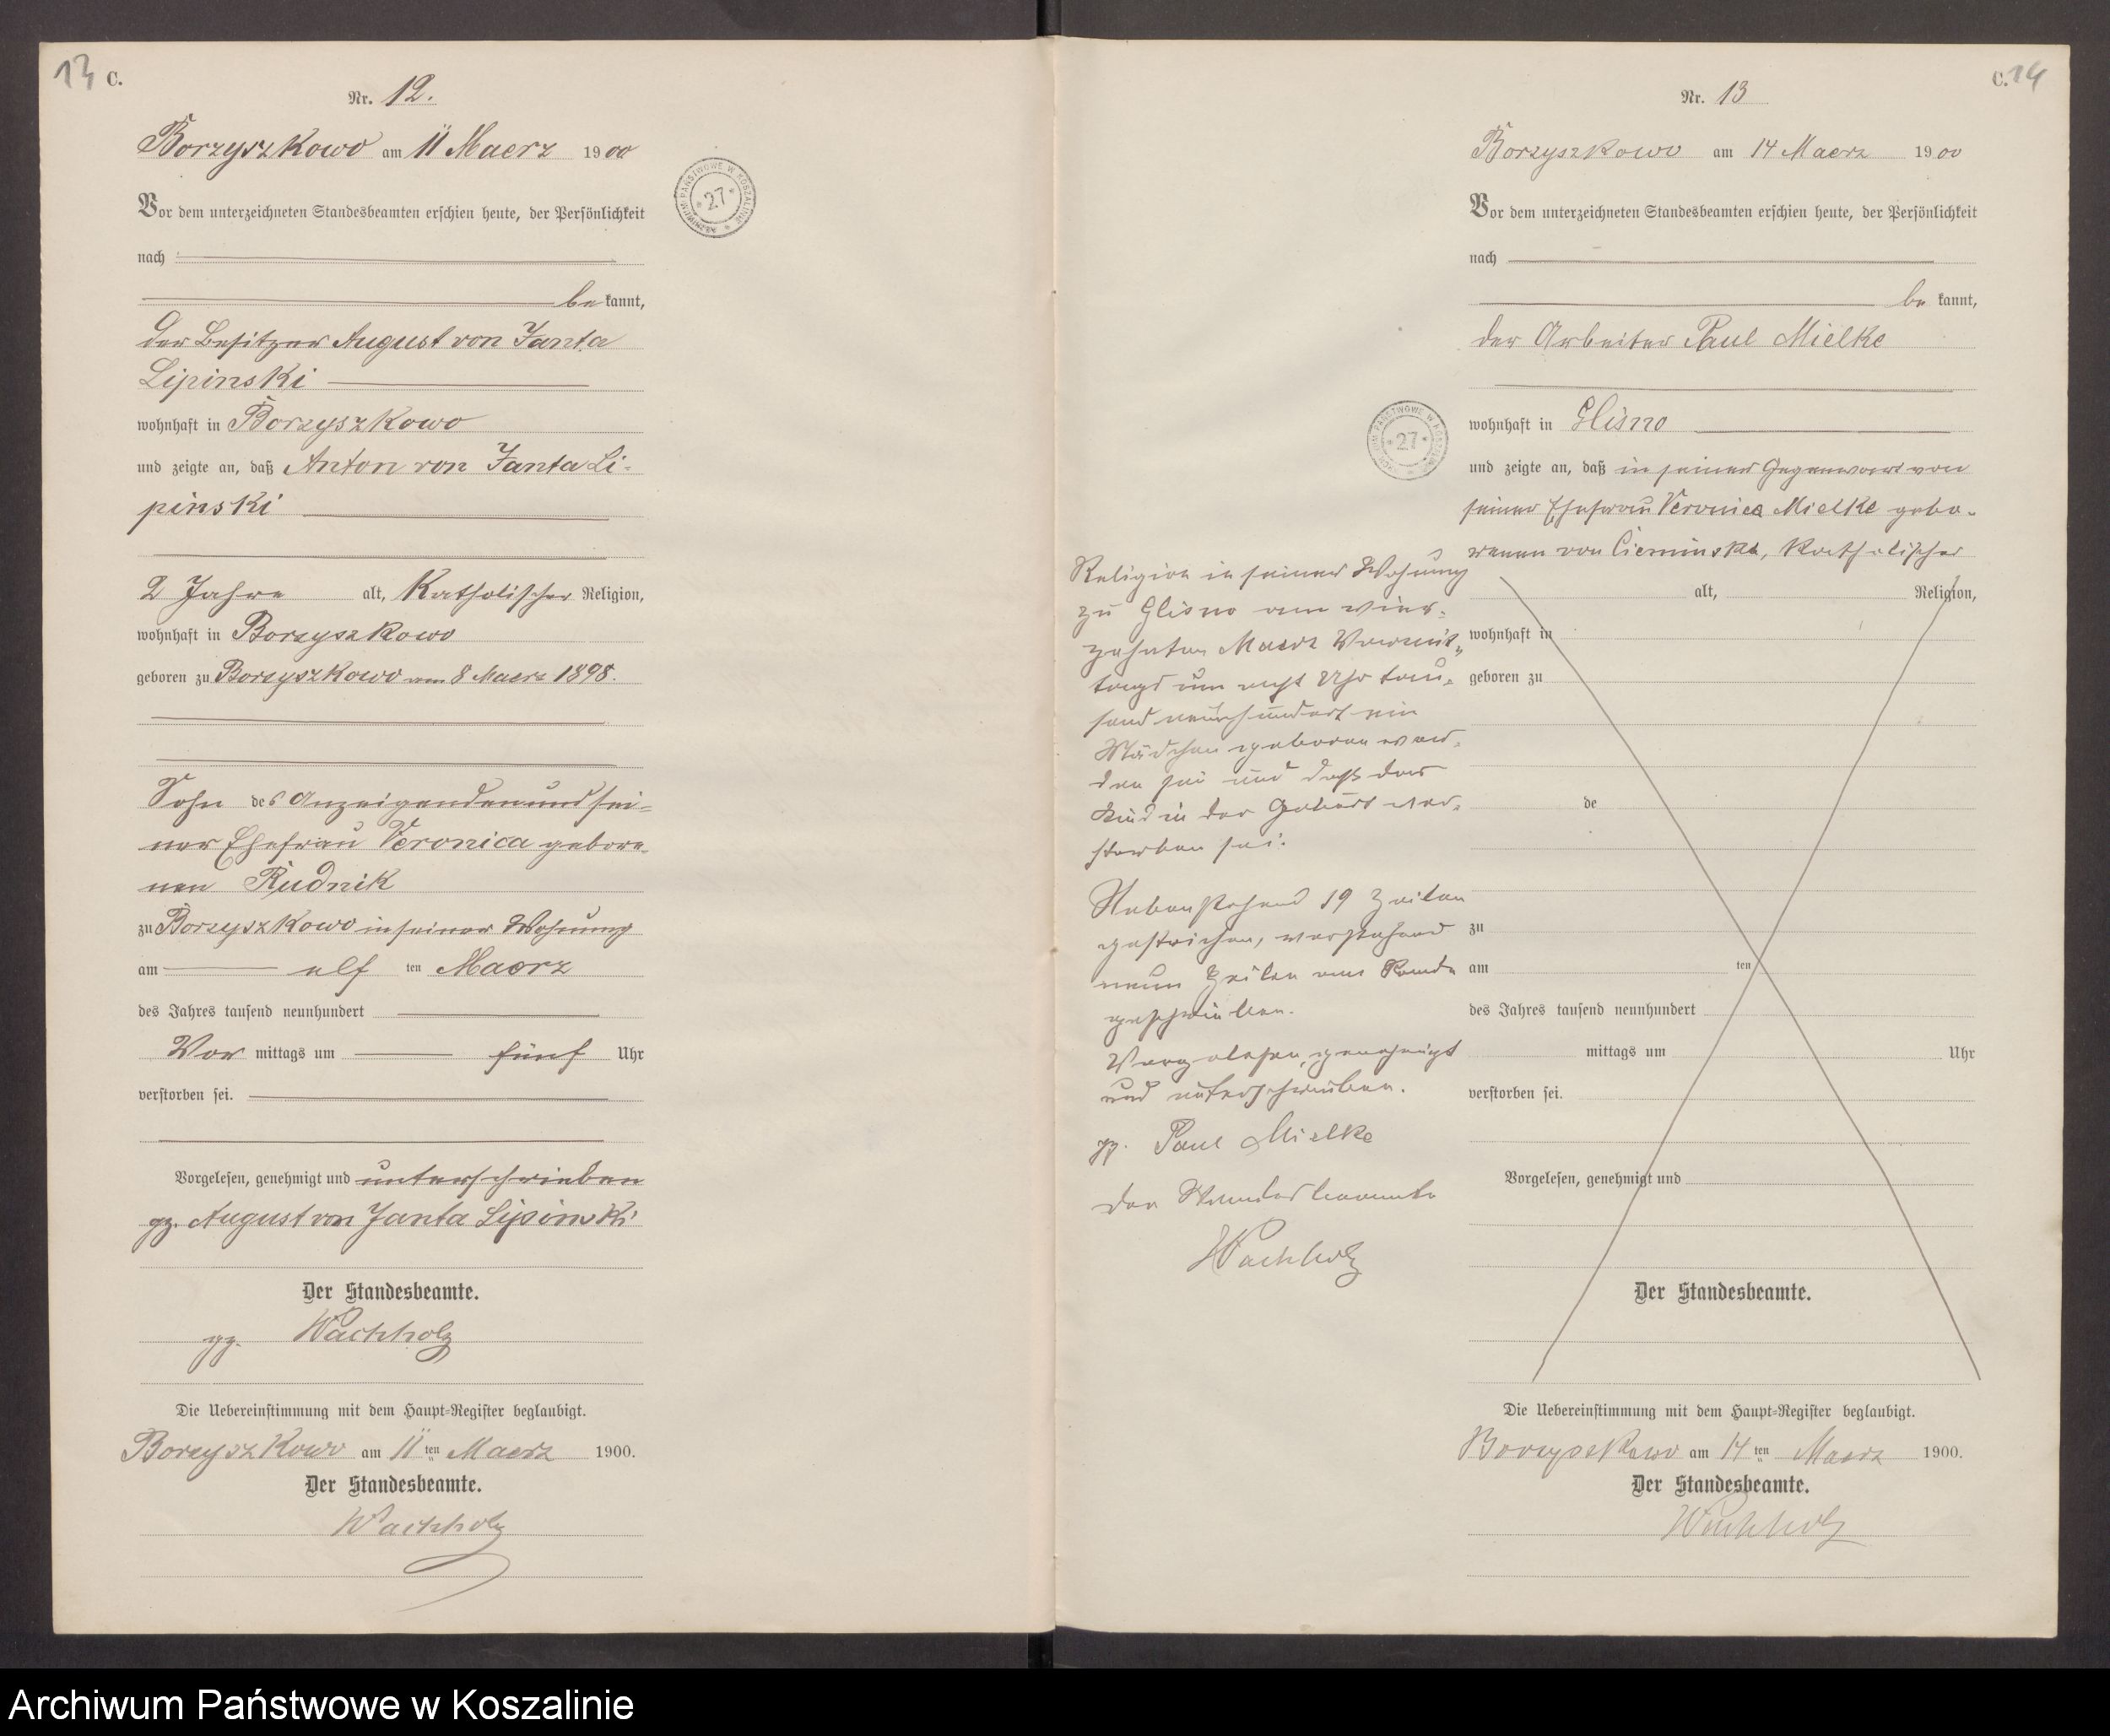 13 C.
Nr. 12.
Borzyszkowo am 11 Maerz 1900
Vor dem unterzeichneten Standesbeamten erschien heute, der Persönlichkeit
nach
be kannt,
der Besitzer August von Janta
Lipinski
wohnhaft in Borzyszkowo
und zeigte an, daß Anton von Janta Li-
pinski
2 Jahre alt, Katholischer Religion,
wohnhaft in Borzyszkowo
geboren zu Borzyszkowo am 8 Maerz 1898.
Sohn des Anzeigenden und sei-
ner Ehefrau Veronica gebore-
nen Rudnik
zu Borzyszkowo in seiner Wohnung
am elf ten Maerz
des Jahres tausend neunhundert
Vor mittags um fünf Uhr
verstorben sei.
Vorgelesen, genehmigt und unterschrieben
gz. August von Janta Lipinski
Der Standesbeamte.
gz. Wachholz
Die Uebereinstimmung mit dem Haupt-Register beglaubigt.
Borzyszkowo am 11ten Maerz 1900.
Der Standesbeamte.
Wachholz
ARCHIWUM PAŃSTWOWE W KOSZALINIE
* 27 *
C. 14
Nr. 13
Borzyszkowo am 14 Maerz 1900
Vor dem unterzeichneten Standesbeamten erschien heute, der Persönlichkeit
nach
be kannt,
der Arbeiter Paul Mielke
wohnhaft in Glisno
und zeigte an, daß in seiner Gegenwart von
seiner Ehefrau Veronica Mielke gebo-
renen von Cieminska, Katholischer
Religion in seiner Wohnung
zu Glisno am vier-
zehnten Maerz Vormit-
tags um acht Uhr tau-
send neunhundert ein
Mädchen geboren wor-
den sei und daß das
Kind in der Geburt ver-
storben sei.
Nebenstehend 19 Zeilen
gestrichen, vorstehend
neun Zeilen am Rande
geschrieben.
Vorgelesen, genehmigt
und unterschrieben.
gz. Paul Mielke
der Standesbeamte
Wachholz
ARCHIWUM PAŃSTWOWE W KOSZALINIE
* 27 *
alt, Religion,
wohnhaft in
geboren zu
de
zu
am ten
des Jahres tausend neunhundert
mittags um Uhr
verstorben sei.
Vorgelesen, genehmigt und
Der Standesbeamte.
Die Uebereinstimmung mit dem Haupt-Register beglaubigt.
Borzyszkowo am 14ten Maerz 1900.
Der Standesbeamte.
Wachholz
Archiwum Państwowe w Koszalinie